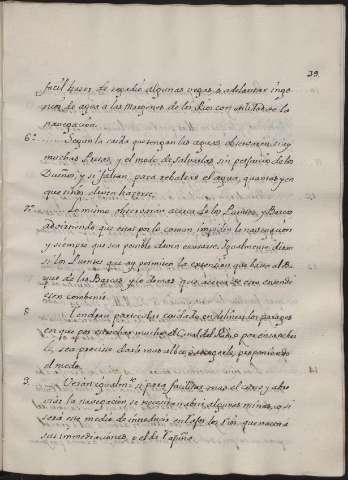 39.
facil hacer de regadio algunas vegas, ò adelantar inge
nios de agua a las margenes de los Rios con utilidad de la
navegacion.
6.ª Segun la caida que tengan las aguas, observaran si ay
muchas Presas, y el modo de salvarlas sin perjuicio de los
Dueños, y si faltan para rebalsar el agua, quantas y en
que sitios deven hacerse.
7.ª Lo mismo observaran acerca de los Puentes, y Barcas
advirtiendo que estas por lo comun impiden la navegacion
y siempre que sea posible deven escusarse. Igualmente diran
si los Puentes que ay permiten la extension que baste al
que de las Barcas y lo demas que acerca de esto entendi
esen combenir.
8. Tendran particular cuidado en delinear los parages
en que por estrechar mucho el Canal del Rio, ò por ensanchar
le, sea preciso darle mas alveo, ò estrecharle, proponiendo
el modo.
9. Veran igualm.te si para facilitar mas el curso y abre
viar la navegacion se necesitan abrir algunas minas, o si
será este medio de introducir en los Rios que nacen a
sus immediaciones, y el de